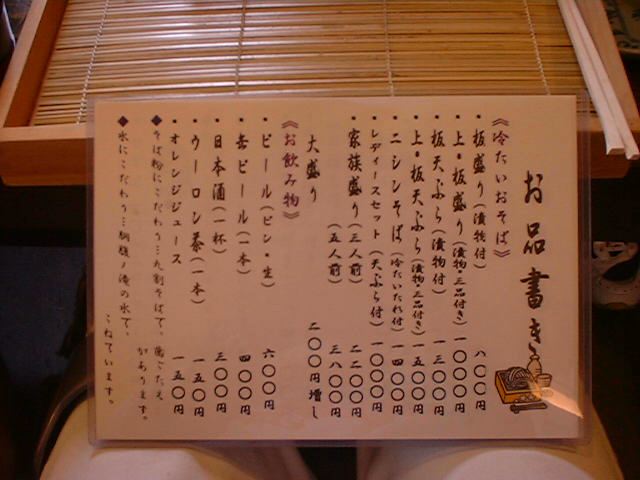 お品書き
《冷たいおそば》
・板盛り(漬物付) 八〇〇円
・上・板盛り(漬物・三品付き) 一〇〇〇円
・板天ぷら(漬物付) 一三〇〇円
・上・板天ぷら(漬物・三品付き) 一五〇〇円
・ニシンそば(冷たいたれ付) 一四〇〇円
・レディースセット(天ぷら付) 一〇〇〇円
・家族盛り(三人前) 二二〇〇円
(五人前) 三八〇〇円
大盛り 二〇〇円増し
《お飲み物》
・ビール(ビン・生) 六〇〇円
・缶ビール(一本) 四〇〇円
・日本酒(一杯) 三〇〇円
・ウーロン茶(一本) 一五〇円
・オレンジジュース 一五〇円
◆そば粉にこだわり…九割そばで、歯ごたえ
があります。
◆水にこだわり…桐様ノ滝の水で、
こねています。